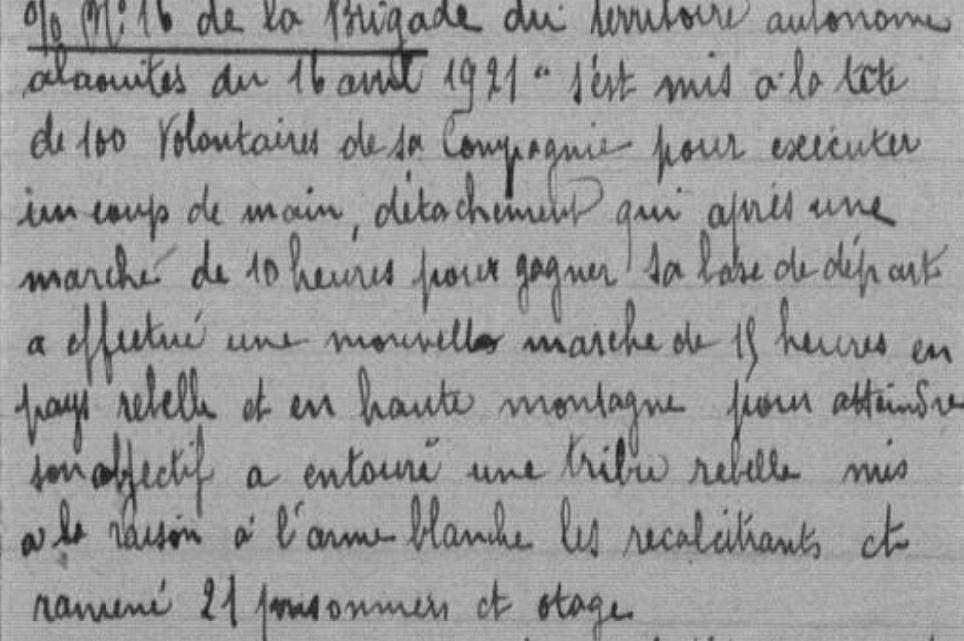 o/o N: 16 de la Brigade du territoire autonome
alaouites du 16 avril 1921 " s'est mis a la tête
de 100 Volontaires de sa Compagnie pour exécuter
un coup de main, détachement qui après une
marche de 10 heures pour gagner sa base de départ
a effectué une nouvelle marche de 15 heures en
pays rebelle et en haute montagne pour atteindre
son objectif a entouré une tribu rebelle mis
a la raison à l'arme blanche les recalcitrants et
ramené 21 prisonniers et otage